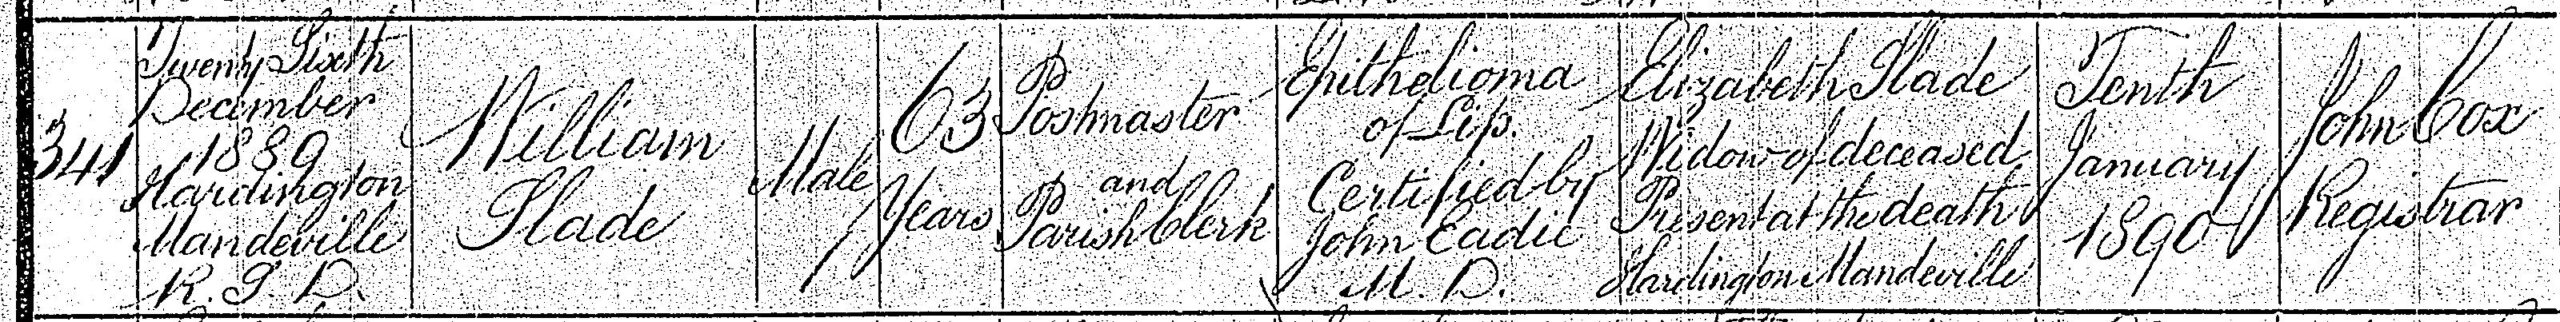 341
Twenty Sixth
December
1889
Hardington
Mandeville
R. S. D.
William
Slade
Male
63
Years
Postmaster
and
Parish Clerk
Epithelioma
of Lip.
Certified by
John Eadie
M. D.
Elizabeth Slade
Widow of deceased
Present at the death
Hardington Mandeville
Tenth
January
1890
John Cox
Registrar